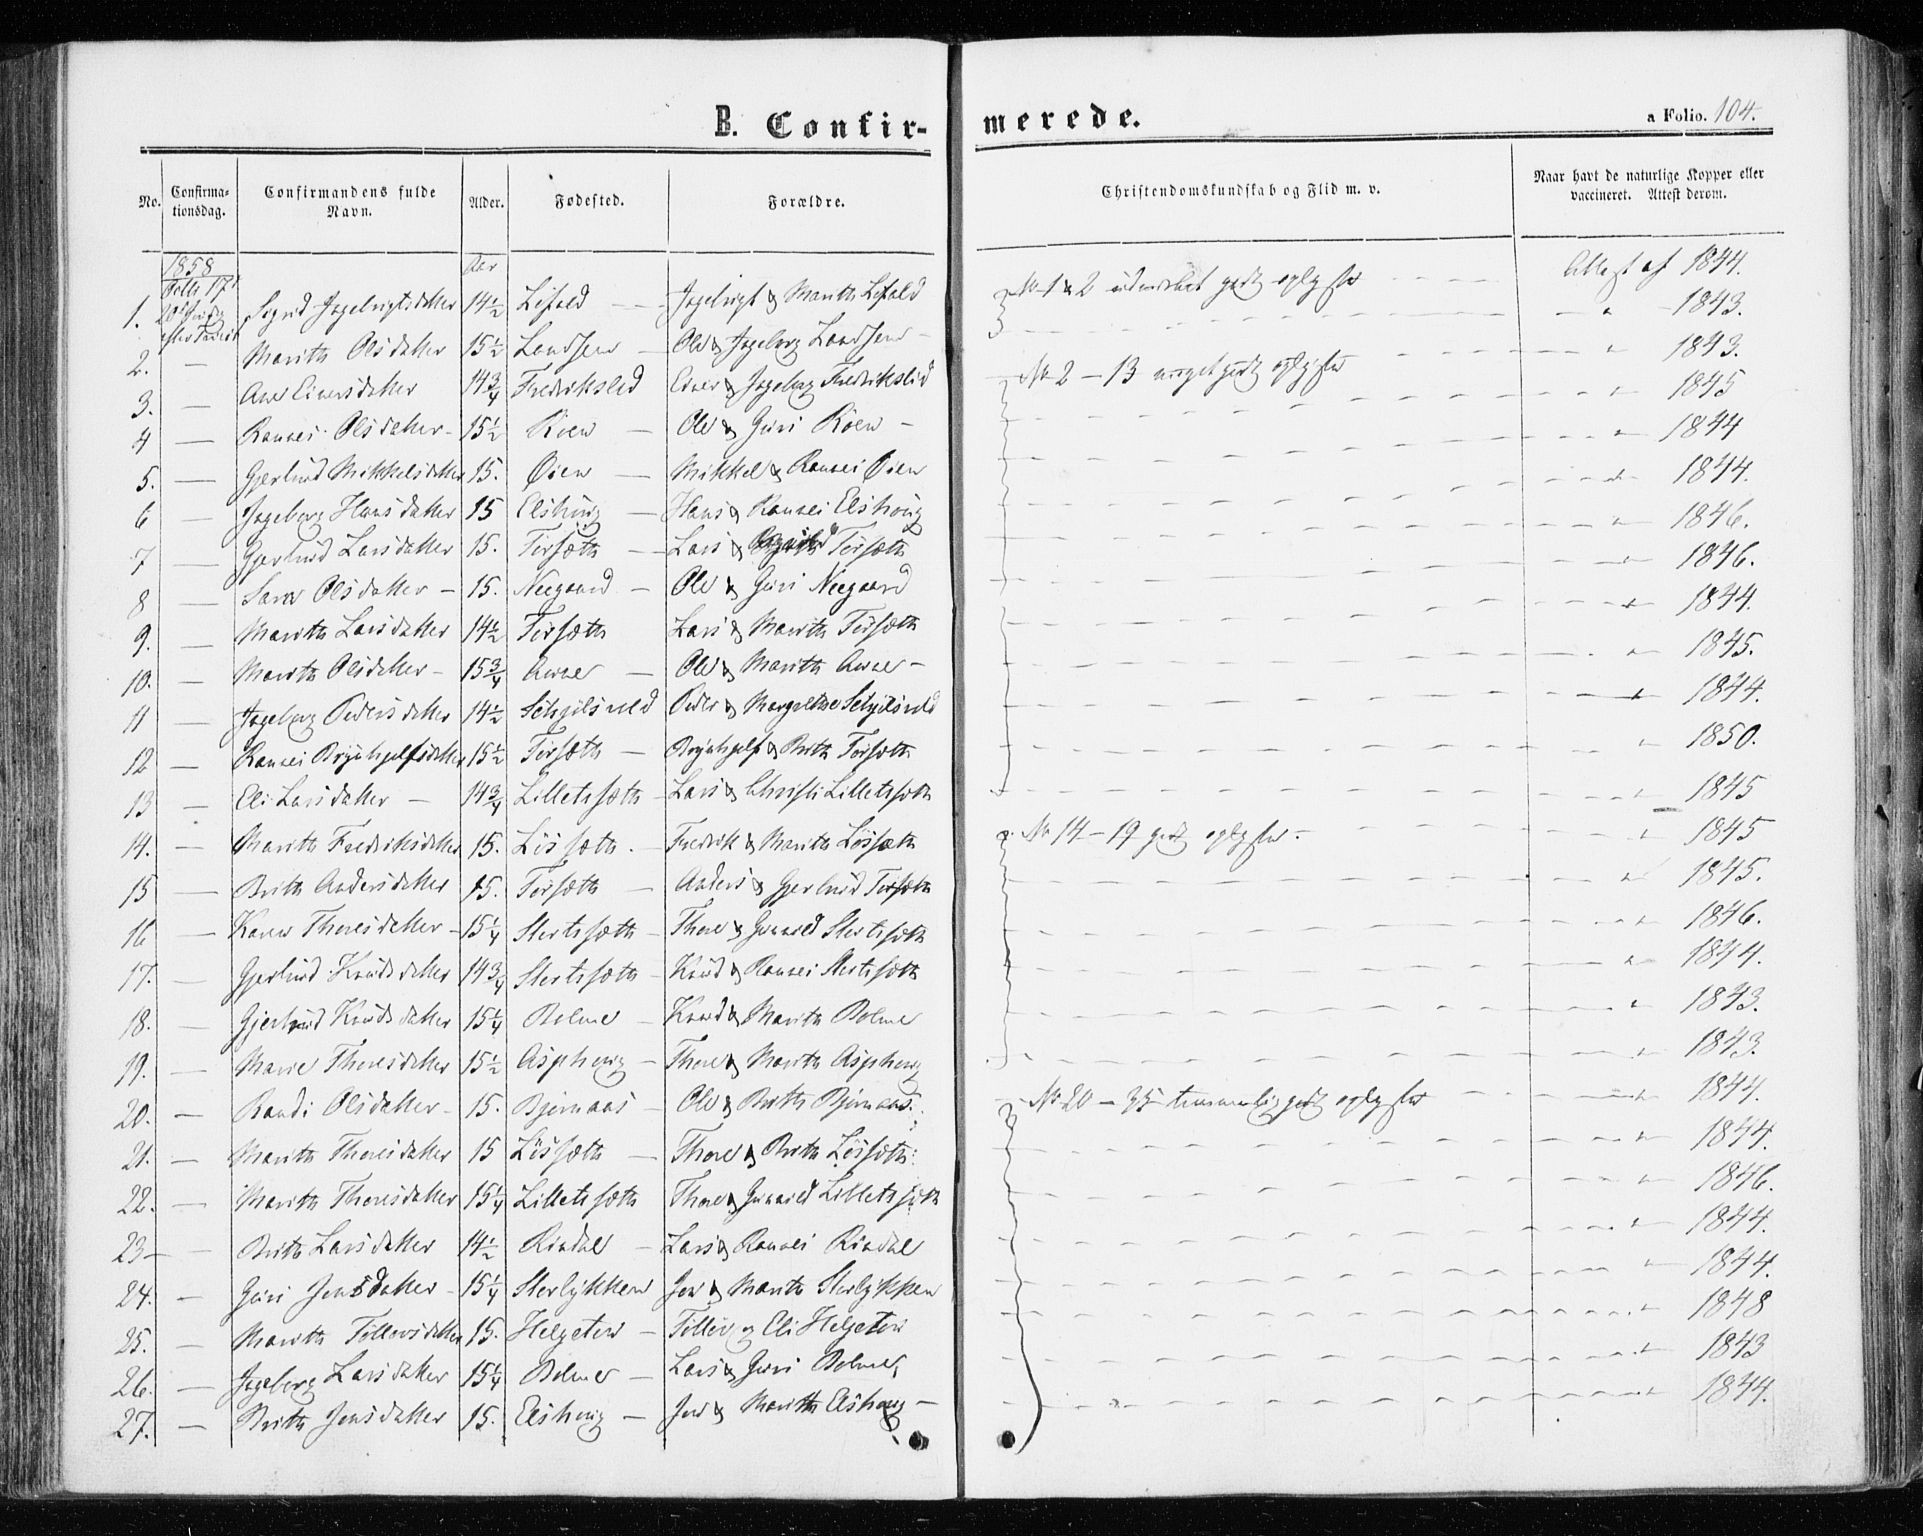 B. Confirmerede.
a Folio. 104.
No. Confirmationsdag. Confirmandens fulde Navn. Alder. Fødested. Forældre. Christendomskundskab og Flid m. v. Naar havt de naturlige Kopper eller vaccineret. Attest derom.
1858 Aar
1. Sigrid Ingebrigtsdatter 14½ Lifald — Ingebrigt & Marith Lifald No 1 & 2 udmærket godt Attest af 1844.
2. — Marith Olsdatter 15½ — Ole & Ingeborg — 1843.
3. — Ane Einersdatter 14¾ Fredrikslid Einer & Ingeborg Fredrikslid 1843.
4 — Rannei Olsdatter 15½ Röen — Ole & Guri Röen — 1845
5. — Gjertrud Mikkelsdatter 15. Øien — Mikkel & Rannei Øien 1844
6 — Ingeborg Hansdatter 15 Elshoug — Hans & Rannei Elshoug 1844.
7 — Gjertrud Larsdatter 15. Torsæth — Lars & Torsæth 1846.
8 — Olsdatter — 15. Neegaard — Ole & Guri Neegaard 1846.
9. — Marith Larsdatter 14½ Torsæth Lars & Marith Torsæth 1844.
10. — Marith Olsdatter — 15¾ — Ole & Marith — 1845.
11 — Ingeborg Pedersdatter 14½ Peder & 1844.
12 — Rannei Brynhjelfsdatter 15½ Torsæth — Brynhjelf & Brith Torsæth 1850.
13 — Eli Larsdatter — 14¾ Lilletsæth — Lars & Christi Lilletsæth 1845
14. — Marith Fredriksdatter 15. Lössæth. — Fredrik & Marith Lössæth No 14 — 19 godt 1845
15 — Brith Andersdatter 15. Torsæth — Anders & Gjertrud Torsæth 1845.
16 — Karen Thoresdatter — 15¼ Stortsæth — Thore & Stortsæth 1846.
17. — Gjertrud Knudsdatter 14¾ Stortsæth — Knud & Rannei Stortsæth 1844.
18. — Gjertrud Knudsdatter 15¼ Bolme — Knud & Marith Bolme 1843.
19. — Marie Thoresdatter 15½ Asphoug — Thore & Marith Asphoug 1843.
20. — Randi Olsdatter — 15. Bjørnaas — Ole & Brith Bjørnaas No 20 — 35 temmelig godt 1844.
21. — Marith Thoresdatter 15 Lössæth — Thore & Brith Lössæth 1844.
22. — Marith Thoresdatter 15¼ Lilletsæth Thore & Lilletsæth 1846.
23 — Brith Larsdatter 14½ Rindal — Lars & Rannei Rindal 1844.
24. — Guri Jonsdatter — 15¼ Storlykken Jon & Marith Storlykken 1844.
25. — Marith Tollevsdatter 15. Helgeton — Tollev og Eli Helgeton 1848
26. — Ingeborg Larsdatter 15¼ Bolme — Lars & Guri Bolme 1843
27. — Brith Jonsdatter 15. Elshoug — Jon & Marith Elshoug — 1844.